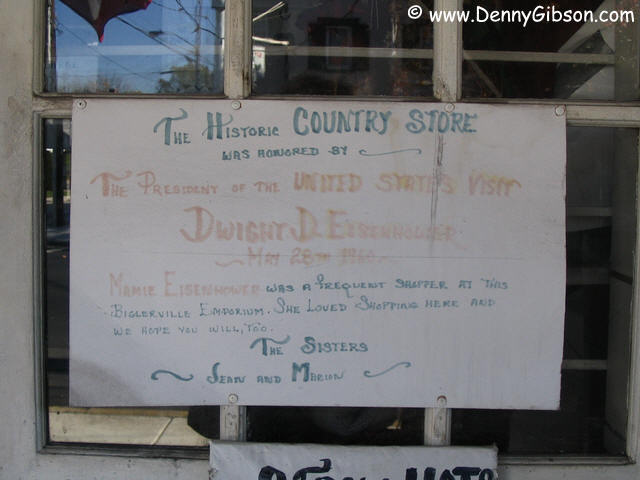 © www.DennyGibson.com
The Historic Country Store
was honored by
The President of the United States Visit
Dwight D. Eisenhower
May 28th 1960
Mamie Eisenhower was a frequent shopper at this
Biglerville Emporium. She loved shopping here and
we hope you will, too.
The Sisters
Jean and Marion